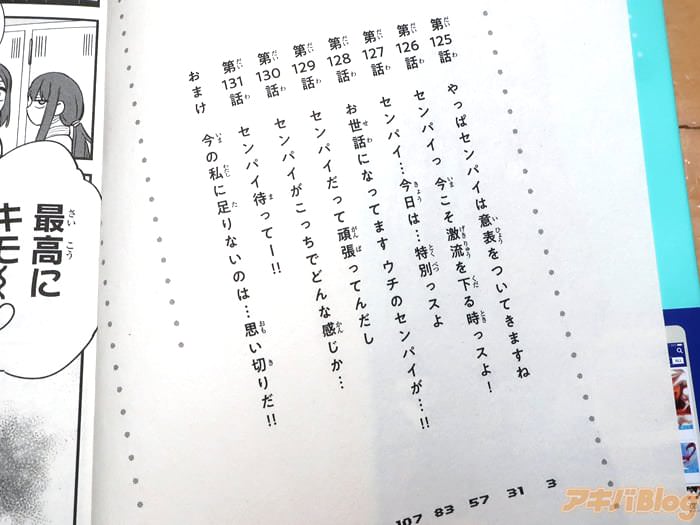 第125話 やっぱセンパイは意表をついてきますね
第126話 センパイっ 今こそ激流を下る時っスよ!
第127話 センパイ…今日は…特別っスよ
第128話 お世話になってます ウチのセンパイが…!!
第129話 センパイだって頑張ってんだし
第130話 センパイがこっちでどんな感じか…
第131話 センパイ待ってー!!
おまけ 今の私に足りないのは…思い切りだ!!
3
31
57
83
107
最高に
キモ
アキバBlog